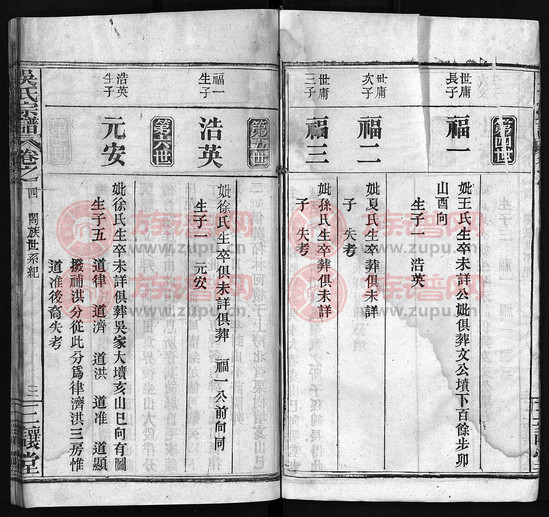 第四世
世庸長子
福一
妣王氏生卒未詳公妣俱葬文公墳下百餘步卯
山酉向
生子一 浩英
世庸次子
福二
妣夏氏生卒葬俱未詳
子失考
世庸三子
福三
妣孫氏生卒葬俱未詳
子失考
第五世
福一生子
浩英
妣徐氏生卒俱未詳俱葬 福一公前向同
生子一 元安
第六世
浩英生子
元安
妣徐氏生卒未詳俱葬吴家大墳亥山巳向有圖
生子五 道律 道濟 道洪 道准 道顯
撥補淇分從此分爲律濟洪三房惟
道准後裔失考
吳氏宗譜
卷之四
閤族世系紀
三
三讓堂
族谱网
www.zupu.cn
族谱网
www.zupu.cn